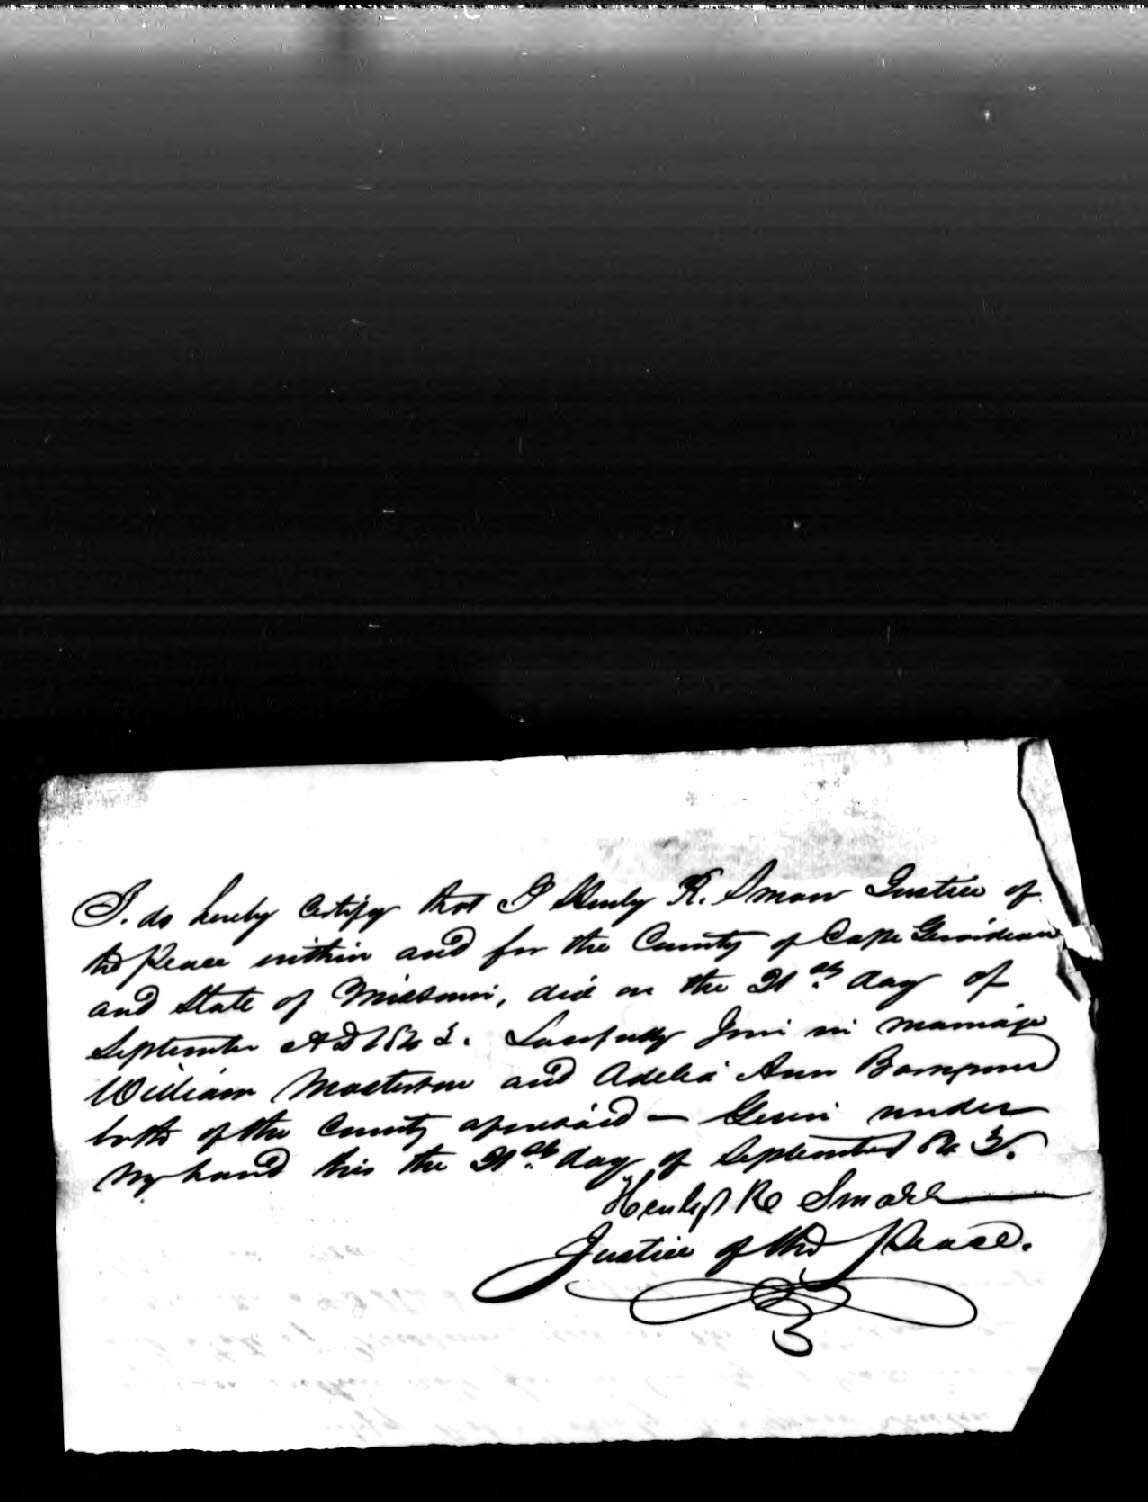 I. do hereby Certify that I Henly R. Smow Justice of
the Peace within and for the County of Cape Girardeau
and State of Missouri, did on the 21st day of
September AD 1843. Lawfully Join in marriage
William Masterson and Adelia Ann
both of the County aforesaid — Given under
my hand this the 21st day of September 1843.
Henly R Smoke
Justice of the Peace.